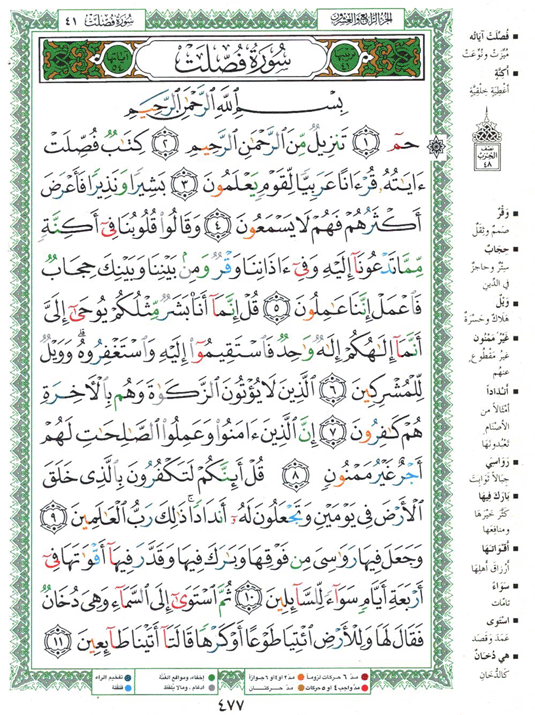 سُورَةُ فُصِّلَتْ ٤١
الجُزءُ الرَّابِعُ وَالعِشْرُونَ
سُورَةُ فُصِّلَتْ
بِسْمِ اللَّهِ الرَّحْمَٰنِ الرَّحِيمِ
حمٓ ١ تَنزِيلٌ مِّنَ ٱلرَّحْمَٰنِ ٱلرَّحِيمِ ٢ كِتَٰبٌ فُصِّلَتْ
ءَايَٰتُهُۥ قُرْءَانًا عَرَبِيًّا لِّقَوْمٍ يَعْلَمُونَ ٣ بَشِيرًا وَنَذِيرًا فَأَعْرَضَ
أَكْثَرُهُمْ فَهُمْ لَا يَسْمَعُونَ ٤ وَقَالُوا۟ قُلُوبُنَا فِىٓ أَكِنَّةٍ
مِّمَّا تَدْعُونَآ إِلَيْهِ وَفِىٓ ءَاذَانِنَا وَقْرٌ وَمِنۢ بَيْنِنَا وَبَيْنِكَ حِجَابٌ
فَٱعْمَلْ إِنَّنَا عَٰمِلُونَ ٥ قُلْ إِنَّمَآ أَنَا۠ بَشَرٌ مِّثْلُكُمْ يُوحَىٰٓ إِلَىَّ
أَنَّمَآ إِلَٰهُكُمْ إِلَٰهٌ وَٰحِدٌ فَٱسْتَقِيمُوٓا۟ إِلَيْهِ وَٱسْتَغْفِرُوهُ ۗ وَوَيْلٌ
لِّلْمُشْرِكِينَ ٦ ٱلَّذِينَ لَا يُؤْتُونَ ٱلزَّكَوٰةَ وَهُم بِٱلْءَاخِرَةِ
هُمْ كَٰفِرُونَ ٧ إِنَّ ٱلَّذِينَ ءَامَنُوا۟ وَعَمِلُوا۟ ٱلصَّٰلِحَٰتِ لَهُمْ
أَجْرٌ غَيْرُ مَمْنُونٍ ٨ قُلْ أَئِنَّكُمْ لَتَكْفُرُونَ بِٱلَّذِى خَلَقَ
ٱلْأَرْضَ فِى يَوْمَيْنِ وَتَجْعَلُونَ لَهُۥٓ أَندَادًا ۚ ذَٰلِكَ رَبُّ ٱلْعَٰلَمِينَ ٩
وَجَعَلَ فِيهَا رَوَٰسِىَ مِن فَوْقِهَا وَبَٰرَكَ فِيهَا وَقَدَّرَ فِيهَآ أَقْوَٰتَهَا فِىٓ
أَرْبَعَةِ أَيَّامٍ سَوَآءً لِّلسَّآئِلِينَ ١٠ ثُمَّ ٱسْتَوَىٰٓ إِلَى ٱلسَّمَآءِ وَهِىَ دُخَانٌ
فَقَالَ لَهَا وَلِلْأَرْضِ ٱئْتِيَا طَوْعًا أَوْ كَرْهًا قَالَتَآ أَتَيْنَا طَآئِعِينَ ١١
فُصِّلَتْ آيَاتُه
مُيِّزَتْ وَنُوِّعَتْ
أَكِنَّةٍ
أغْطِيَةٍ خِلْقِيَّةٍ
نصف
الحزب
٤٨
وَقْرٌ
صَمَمٌ وَثِقَلٌ
حِجَابٌ
سِتْرٌ وحاجِزٌ
في الدِّين
وَيْلٌ
هَلاكٌ وَحَسْرَةٌ
غَيْرُ مَمْنُونٍ
غيرُ مَقْطُوعٍ
عنهم
أنْدَاداً
أمْثالاً من
الأصْنَامِ
تَعْبُدُونَهَا
رَوَاسِيَ
جِبَالاً ثَوابِتَ
بَارَكَ فِيهَا
كَثَّرَ خَيْرَهَا
وَمنافِعَها
أقْوَاتَهَا
أرْزاقَ أهْلِهَا
سَوَاءً
تامَّات
اسْتَوى
عَمَدَ وَقَصَدَ
هِيَ دُخَانٌ
كالدُّخَانِ
مدّ ٦ حركات لزوماً
مدّ ٢ أو ٤ أو ٦ جوازاً
إخفاء، ومواقع الغُنَّة
تفخيم الراء
مدّ واجب ٤ أو ٥ حركات
مدّ حركتان
إدغام، وما لا يُلفَظ
قلقلة
٤٧٧